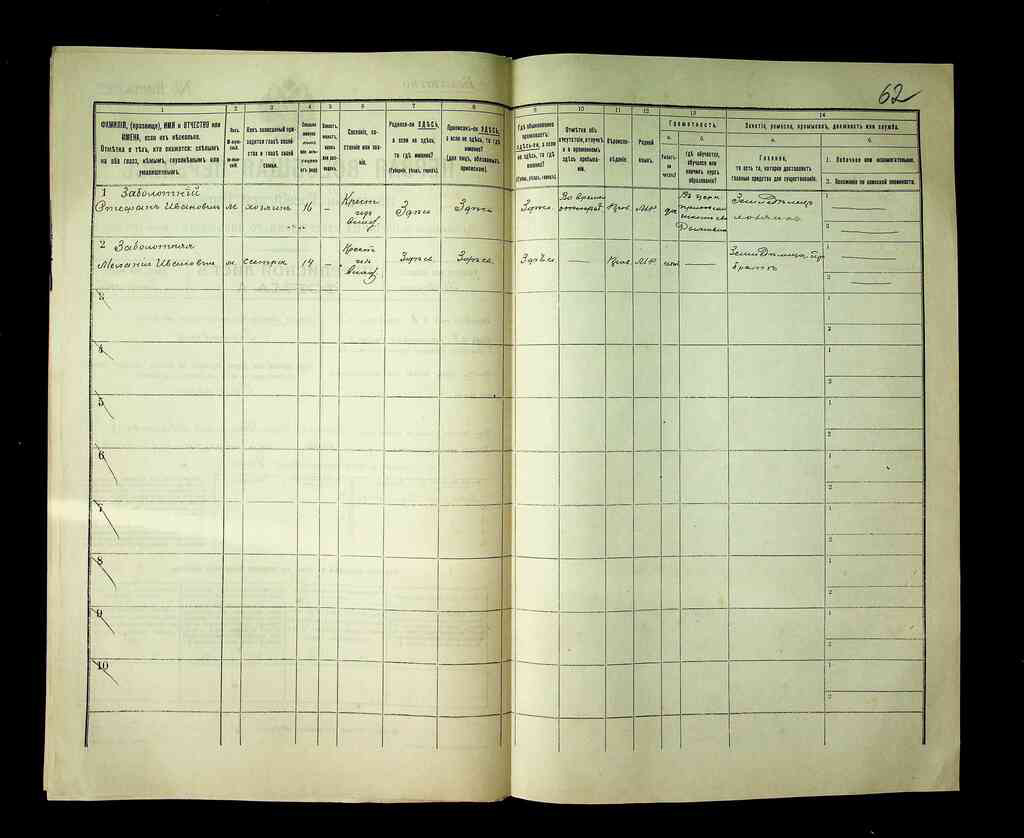 62
1 2 3 4 5 6 7 8 9 10 11 12 13 14
ФАМИЛІЯ, (прозвище), ИМЯ и ОТЧЕСТВО или
ИМЕНА, если ихъ нѣсколько.
Отмѣтка о тѣхъ, кто окажется: слѣпымъ
на оба глаза, нѣмымъ, глухонѣмымъ или
умалишеннымъ.
Полъ.
Какъ записанный при-
ходится главѣ хозяй-
ства и главѣ своей
семьи.
Сословіе, со-
стояніе или зва-
ніе.
Родился-ли ЗДѢСЬ,
а если не здѣсь,
то гдѣ именно?
(Губернія, уѣздъ, городъ).
Приписанъ-ли ЗДѢСЬ,
а если не здѣсь, то гдѣ
именно?
(для лицъ, обязанныхъ
припискою).
Гдѣ обыкновенно
проживаетъ:
ЗДѢСЬ-ли, а если
не здѣсь, то гдѣ
именно?
(Губернія, уѣздъ, городъ).
Отмѣтка объ
отсутствіи, отлучкѣ
и о временномъ
здѣсь пребыва-
ніи.
Вѣроиспо-
вѣданіе.
Родной
языкъ.
Грамотность.
а.
Умѣетъ-
ли
читать?
б.
гдѣ обучается,
обучался или
кончилъ курсъ
образованія?
Занятіе, ремесло, промыселъ, должность или служба.
а.
Главное,
то есть то, которое доставляетъ
главныя средства для существованія.
б.
1. Побочное или вспомогательное.
2. Положеніе по воинской повинности.
1 Заболотній
Стефанъ Ивановъ м хозяинъ 16 — Крест Здѣсь Здѣсь Здѣсь Во время Прав М.Р. да Въ церк Земледѣлецъ 1
хозяинъ 2
2 Заболотная
Меланія Иванова м. сестра 14 — Крест Здѣсь Здѣсь Здѣсь — Прав М.Р. — Земледѣлица при 1
братѣ 2
3 1
2
4 1
2
5 1
2
6 1
2
7 1
2
8 1
2
9 1
2
10 1
2